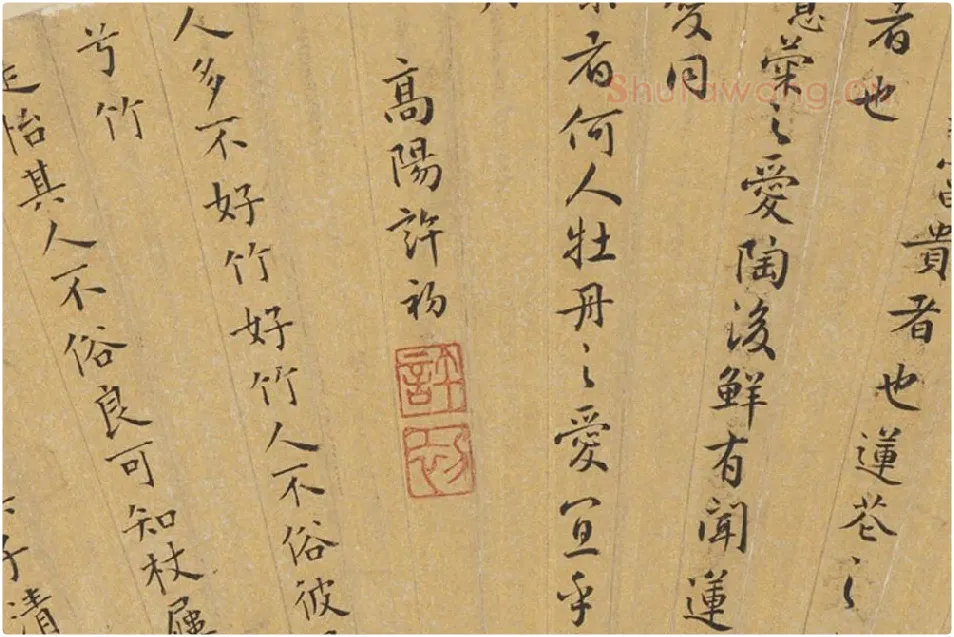 富貴者也蓮花之
者也
噫菊之愛陶後鮮有聞蓮
愛同
者何人牡丹之愛宜乎
高陽許初
許初
人多不好竹好竹人不俗彼
兮竹
怡其人不俗良可知杖屨
子清
Shufawang.cn